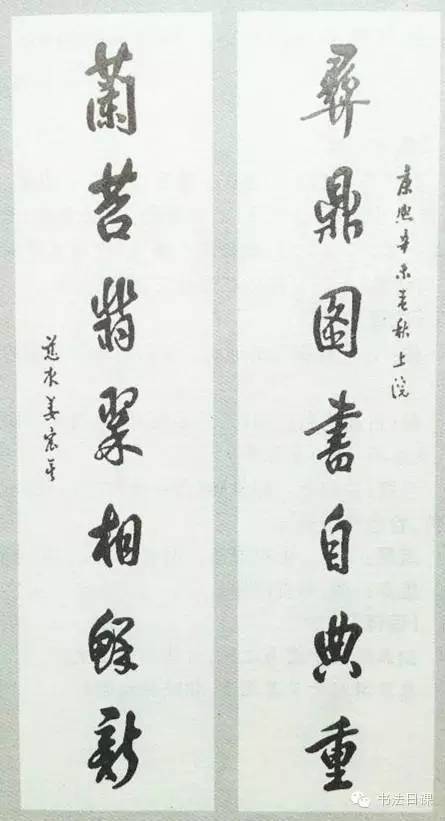 康熙辛未麦秋上浣
彝鼎圖書自典重
蘭苕翡翠相鮮新
慈水姜宸英
书法日课